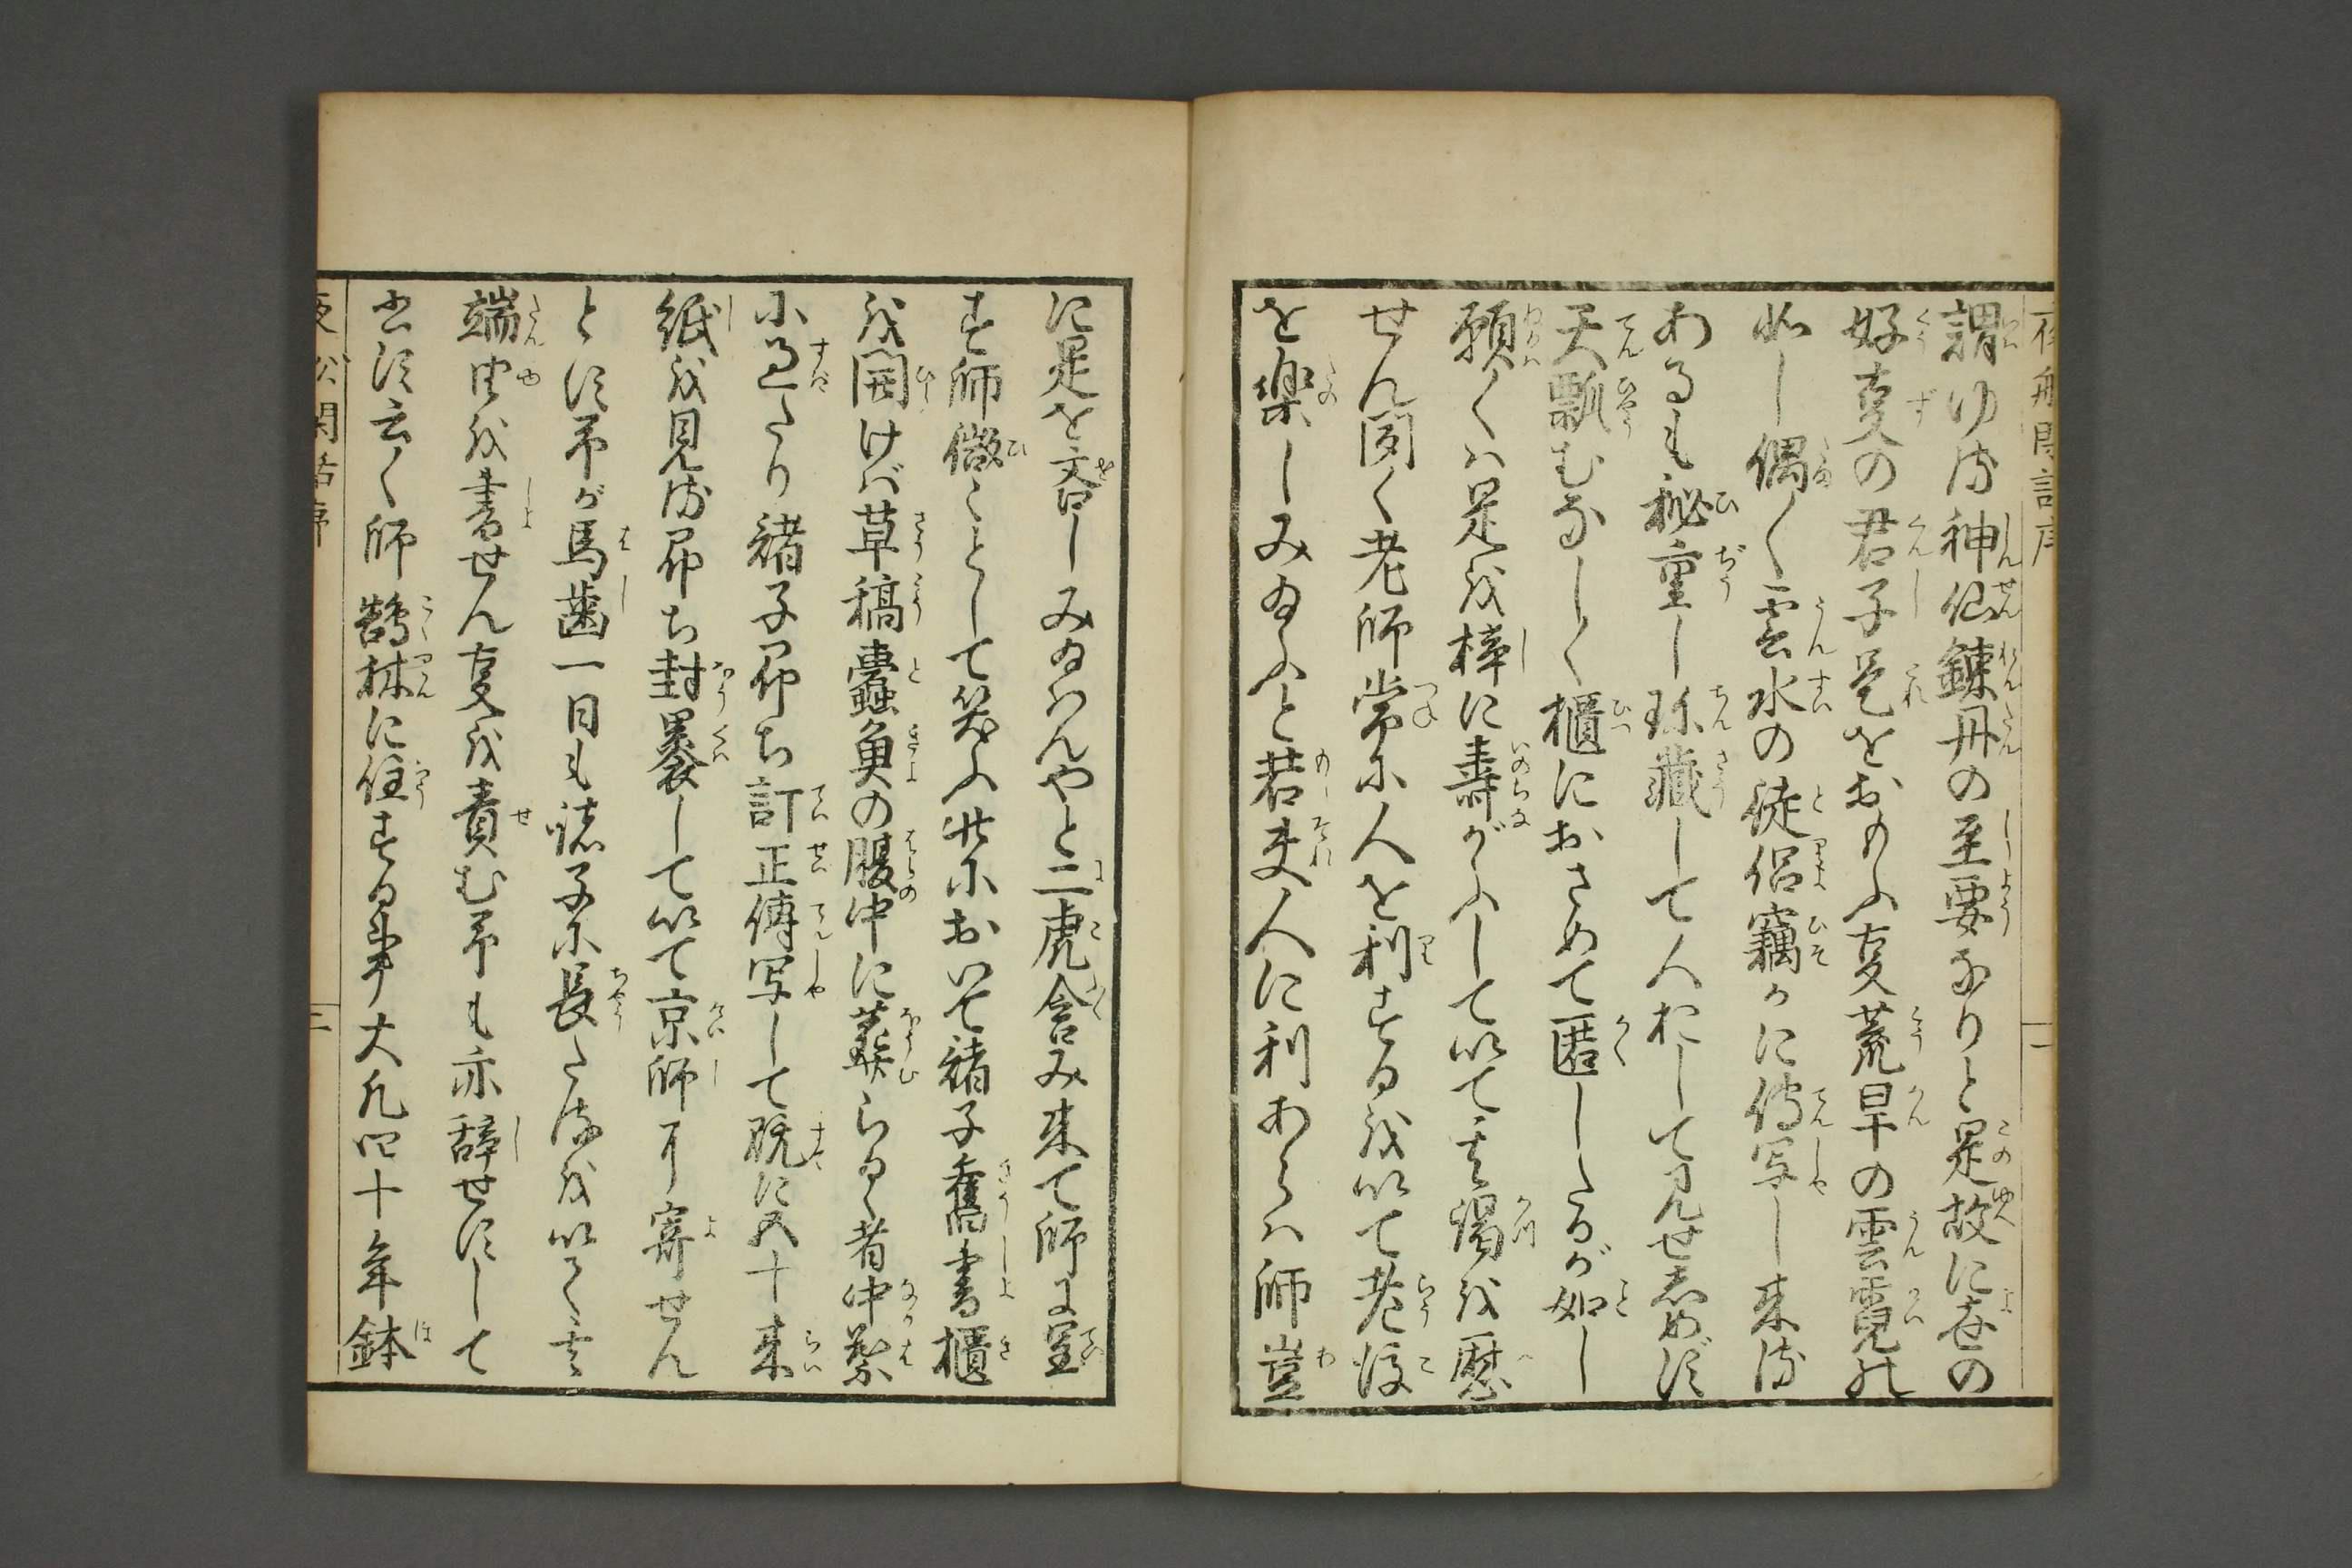 夜船閑話序
謂ゆる神仙錬丹の至要なりと是故に世の
好事の君子是をおもふ事荒旱の雲霓の
如し偶〱雲水の徒侶竊かに傳写し来る
あるも秘重し珍藏して人おして見せしめず
天瓢むなしく櫃におさめて匿したるが如し
願くハ是を梓に壽がふして以て其渇を歴
せん聞く老師常に人を利するを以て老後
を楽しみ給ふと若夫人に利あらハ師豈
に是を吝しみ給ハんやと二虎含み来て師に呈
す師微〻として笑ふ此において諸子舊書櫃
を開けば草稿蠹魚の腹中に葬らるゝ者中葉
に過たり諸子即ち訂正傳写して既に五十来
紙を見る即ち封裹して以て京師に寄せん
とす予が馬歯一日も諸子に長たるを以て其
端由を書せん事を責む予も亦辞せずして
書す云く師鵠林に住する事大凡四十年鉢
夜船閑話序
二